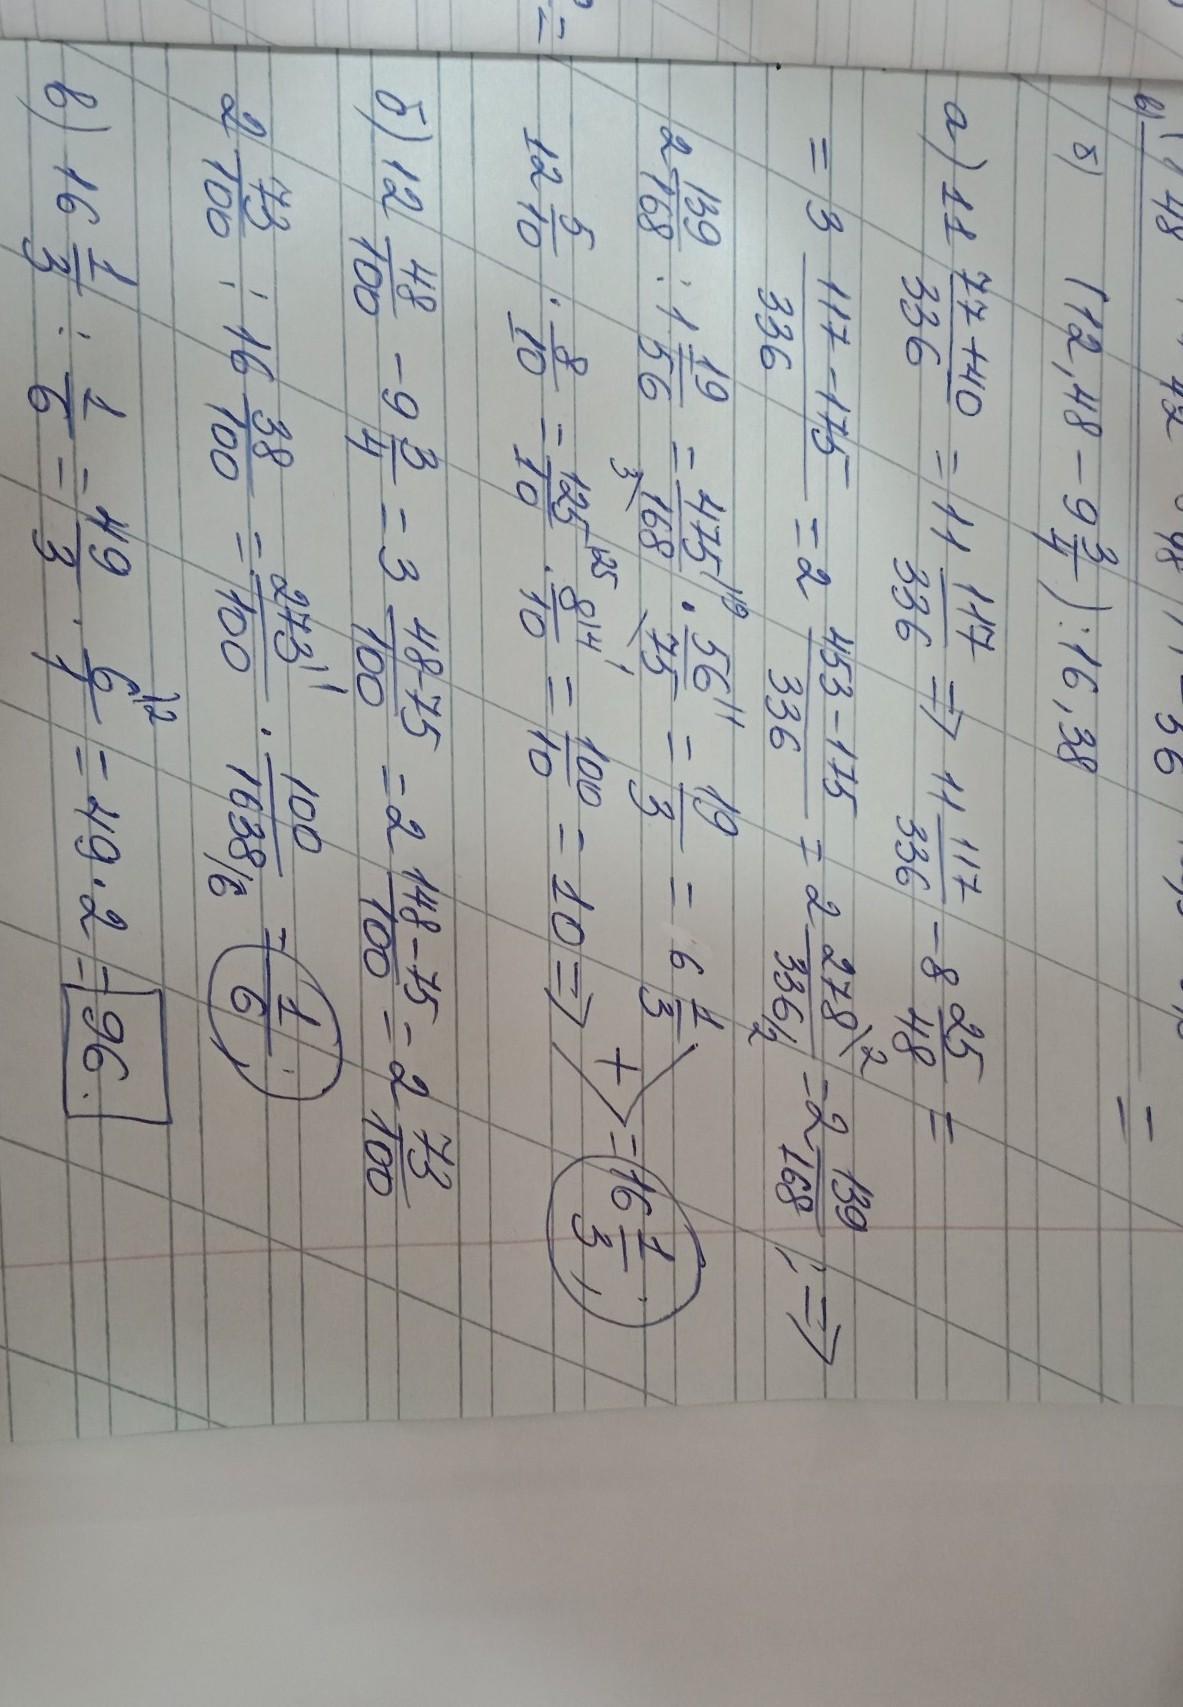 б) (12,48 - 9 3/4) : 16,38
=
а) 11 77+40/336 = 11 117/336 => 11 117/336 - 8 25/48 =
= 3 117-175/336 = 2 453-175/336 = 2 278\2/336/2 = 2 139/168; =>
2 139/168 : 1 19/56 = 475\19/168\3 · 56\1/75\3 = 19/3 = 6 1/3
12 5/10 · 8/10 = 125\25/10 · 8\4/10 = 100/10 = 10 => + = 16 1/3;
б) 12 48/100 - 9 3/4 = 3 48-75/100 = 2 148-75/100 = 2 73/100
2 73/100 : 16 38/100 = 273\1/100 · 100/1638/6 = 1/6;
в) 16 1/3 : 1/6 = 49/3 · 6\2/1 = 49·2 = 96.